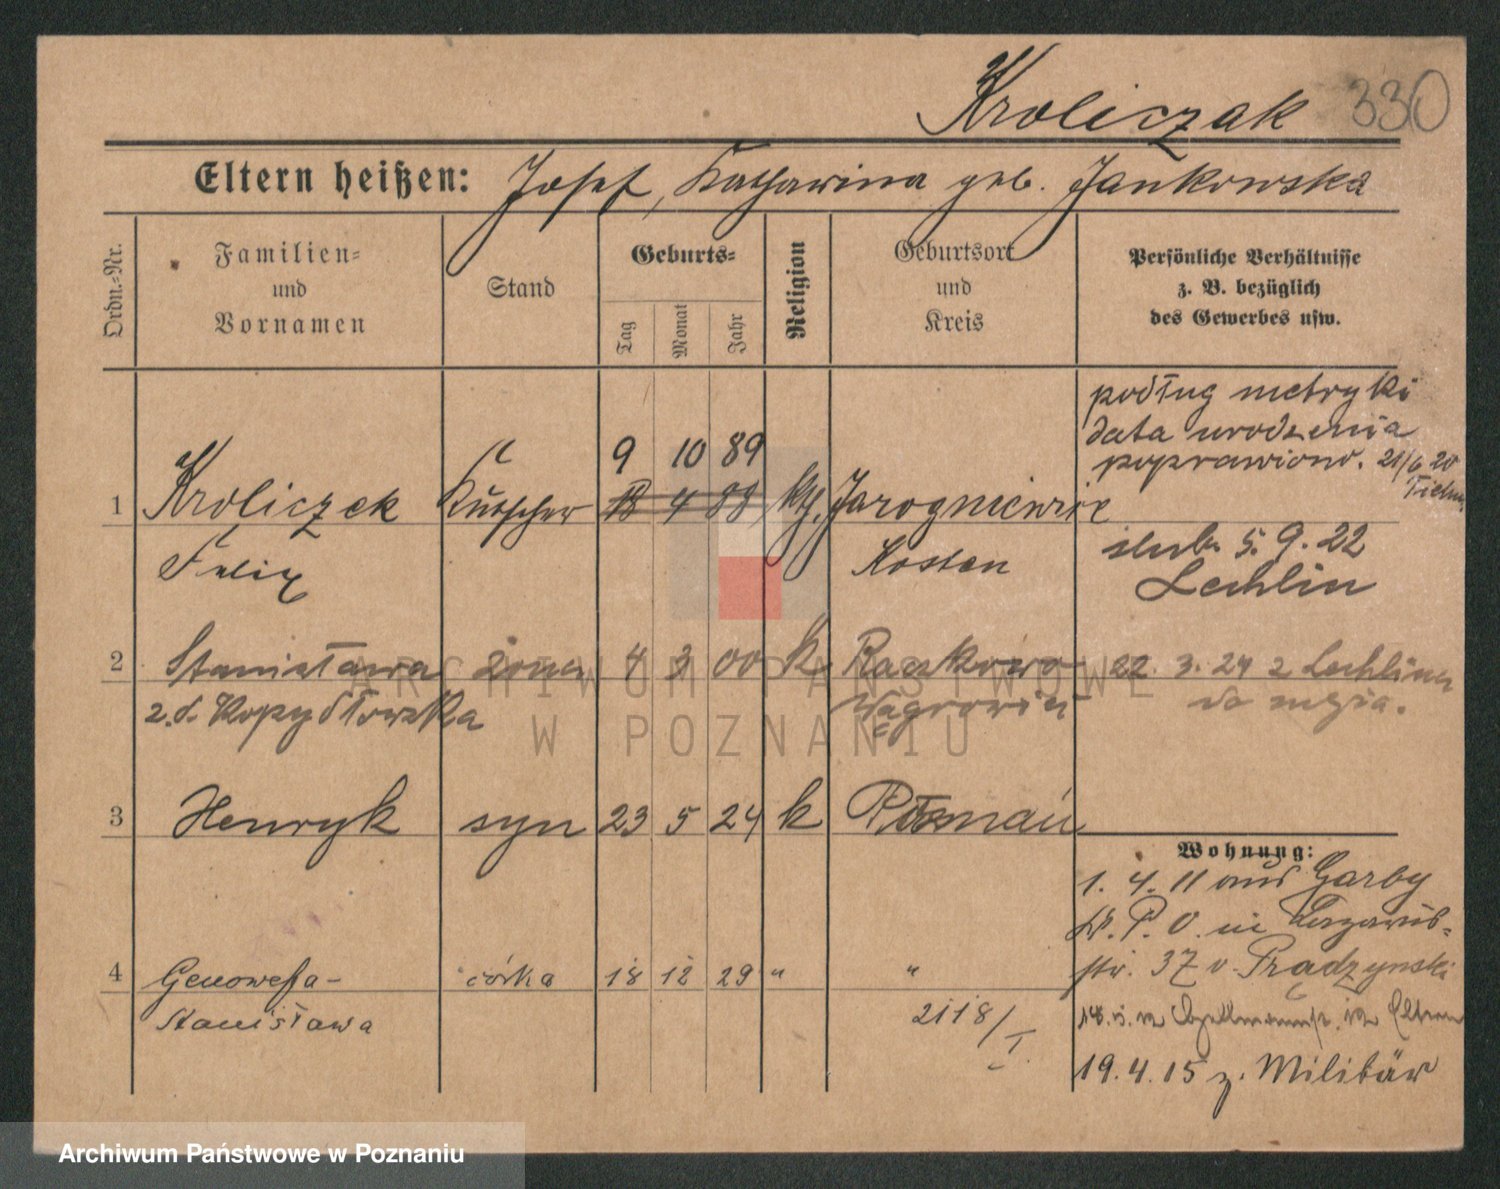 Kroliczak 330
Eltern heißen: Josef, Katharina geb. Jankowska
Ordn.-Nr.
Familien-
und
Vornamen
Stand
Geburts-
Tag
Monat
Jahr
Religion
Geburtsort
und
Kreis
Persönliche Verhältnisse
z. B. bezüglich
des Gewerbes usw.
podług metryki
data urodzenia
poprawiono. 21/6 20
9 10 89
1 Kroliczek Kutscher 18 4 88 kth. Jarogniewice
Felix Kosten
ślub. 5. 9. 22
Lechlin
2 Stanisława żona 4 3 00 k Raczkowo 22. 3. 24 z Lechlina
z. d. Kopydłowska Wągrowiec do męża.
3 Henryk syn 23 5 24 k Poznań
Wohnung:
1. 4. 11 aus Garby
Kr. P. O. in Lazarus-
str. 37 b. Prądzynski
4 Genowefa- córka 18 12 29 " "
Stanisława
2118/I.
Eltern
19. 4. 15 z. Militär
ARCHIWUM PAŃSTWOWE
W POZNANIU
Archiwum Państwowe w Poznaniu